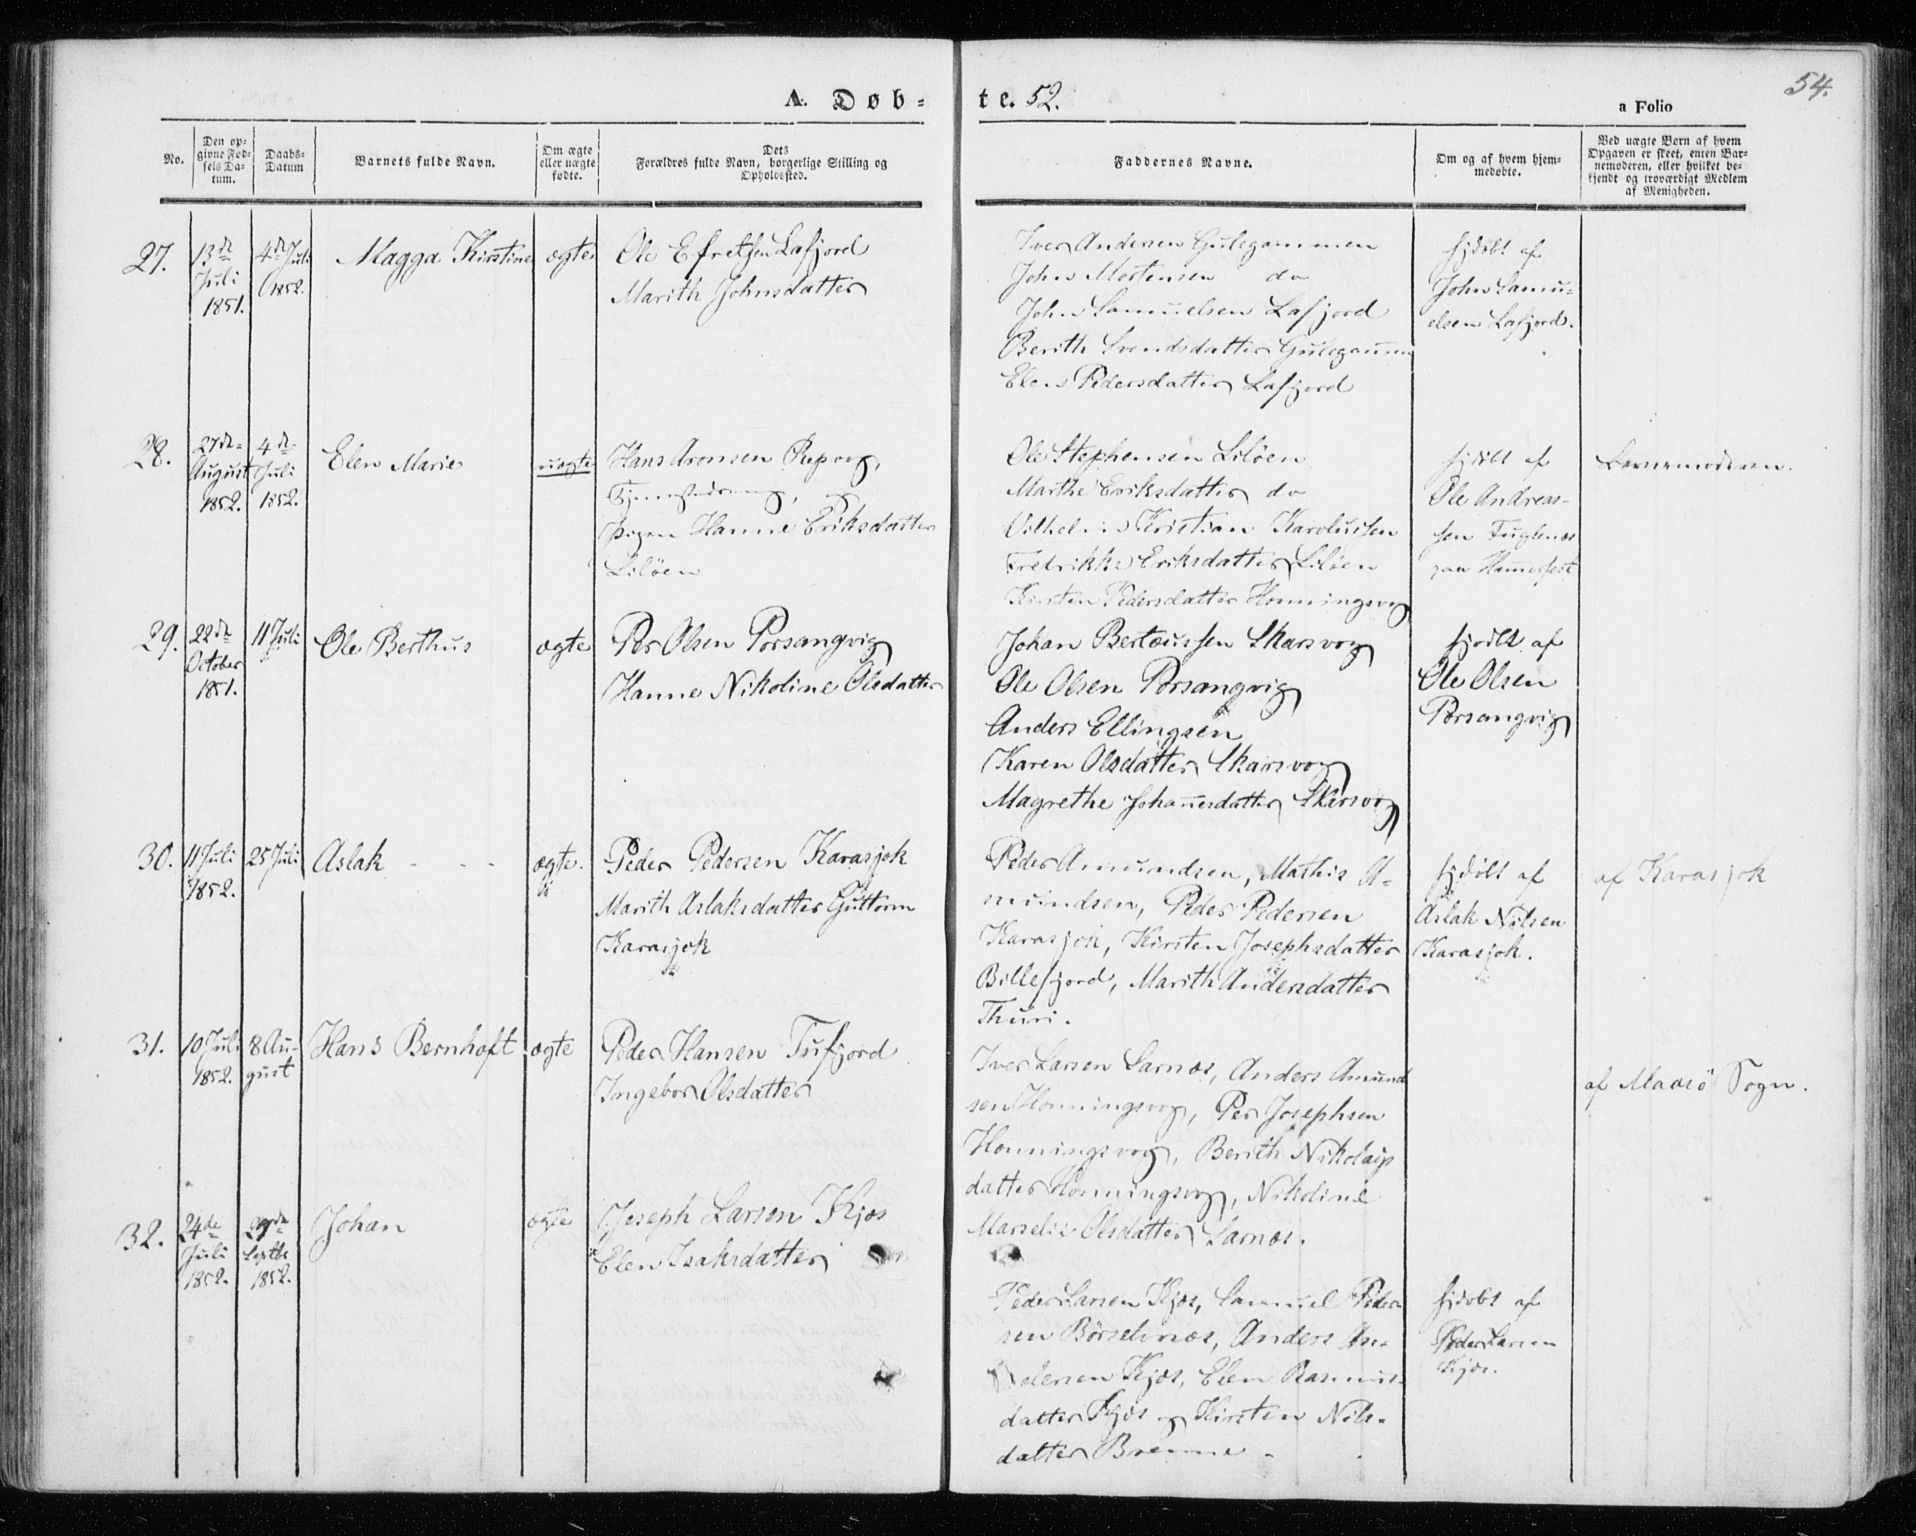 54.
A. Døb- te. 52.
a Folio
No.
Den op-
givne Fød-
sels Da-
tum.
Daabs-
Datum
Barnets fulde Navn.
Om ægte
eller uægte
fødte.
Dets
Forældres fulde Navn, borgerlige Stilling og
Opholdssted.
Faddernes Navne.
Om og af hvem hjem-
medøbte.
Ved uægte Børn af hvem
Opgaven er skeet, enten Bar-
nemoderen, eller hvilket be-
kjendt og troværdigt Medlem
af Menigheden.
27.
13de
Juli
1851.
4de Juli
1852.
Magga Kirstine
ægte
Ole Efretsen Lafjord
Marith Johnsdatter
Iver Andersen Gulegammen
John Mortensen do
John Samuelsen Lafjord
Berith Svendsdatter Gulegammen
Elen Pedersdatter Lafjord
hjdøbt af
John Samu-
elsen Lafjord.
28.
27de
August
1852.
4de
Juli
1852.
Elen Marie
uægte
Hans Aronsen Repvog,
og
Pigen Hanne Eriksdatter
Liløen
Ole Stephensen Liløen
Marthe Eriksdatter do
Kristian Karolussen
Fredrikke Eriksdatter Liløen
Kirsten Pedersdatter Honningsvog
hjdøbt af
Ole Andreas-
sen Fuglenæs
Hammerfest
Barnemoderen.
29.
22de
October
1851.
11 Juli
Ole Berthus
ægte
Per Olsen Porsangvig
Hanne Nikoline Olsdatter
Johan Bertæussen Skarsvog
Ole Olsen Porsangvig
Anders Ellingsen
Karen Olsdatter Skarsvog
Magrethe Johannesdatter Skarsvog
hjdøbt af
Ole Olsen
Porsangvig
30.
11 Juli
1852.
25 Juli
Aslak
ægte.
Peder Pedersen Karasjok
Marith Aslaksdatter Guttorm
Karasjok
Peder Amundsen, Mathis A-
mundsen, Peder Pedersen
Karasjok, Kirsten Josephsdatter
Billefjord, Marith Andersdatter
Thuri.
hjdøbt af
Aslak Nilsen
Karasjok.
af Karasjok
31.
10 Juli
1852.
8 Au-
gust
Hans Bernhoft
ægte
Peder Hansen Tufjord
Ingebor Olsdatter
Iver Larsen Sarnæs, Anders Amund
sen Honningsvog, Per Josephsen
Honningsvog, Berith Nikolays
datter Honningsvog, Nikoline
Marselie Olsdatter Sarnæs.
af Maasø Sogn.
32.
24de
Juli
1852.
29de
Septbr
1852.
Johan
ægte
Joseph Larsen Kjæs
Elen Isaksdatter
Peder Larsen Kjæs, Samuel Peder
sen Børselvnæs, Anders An-
dersen Kjæs, Elen Rasmus-
datter Kjæs og Kirsten Nils-
datter Brenne
hjdøbt af
Peder Larsen
Kjæs.